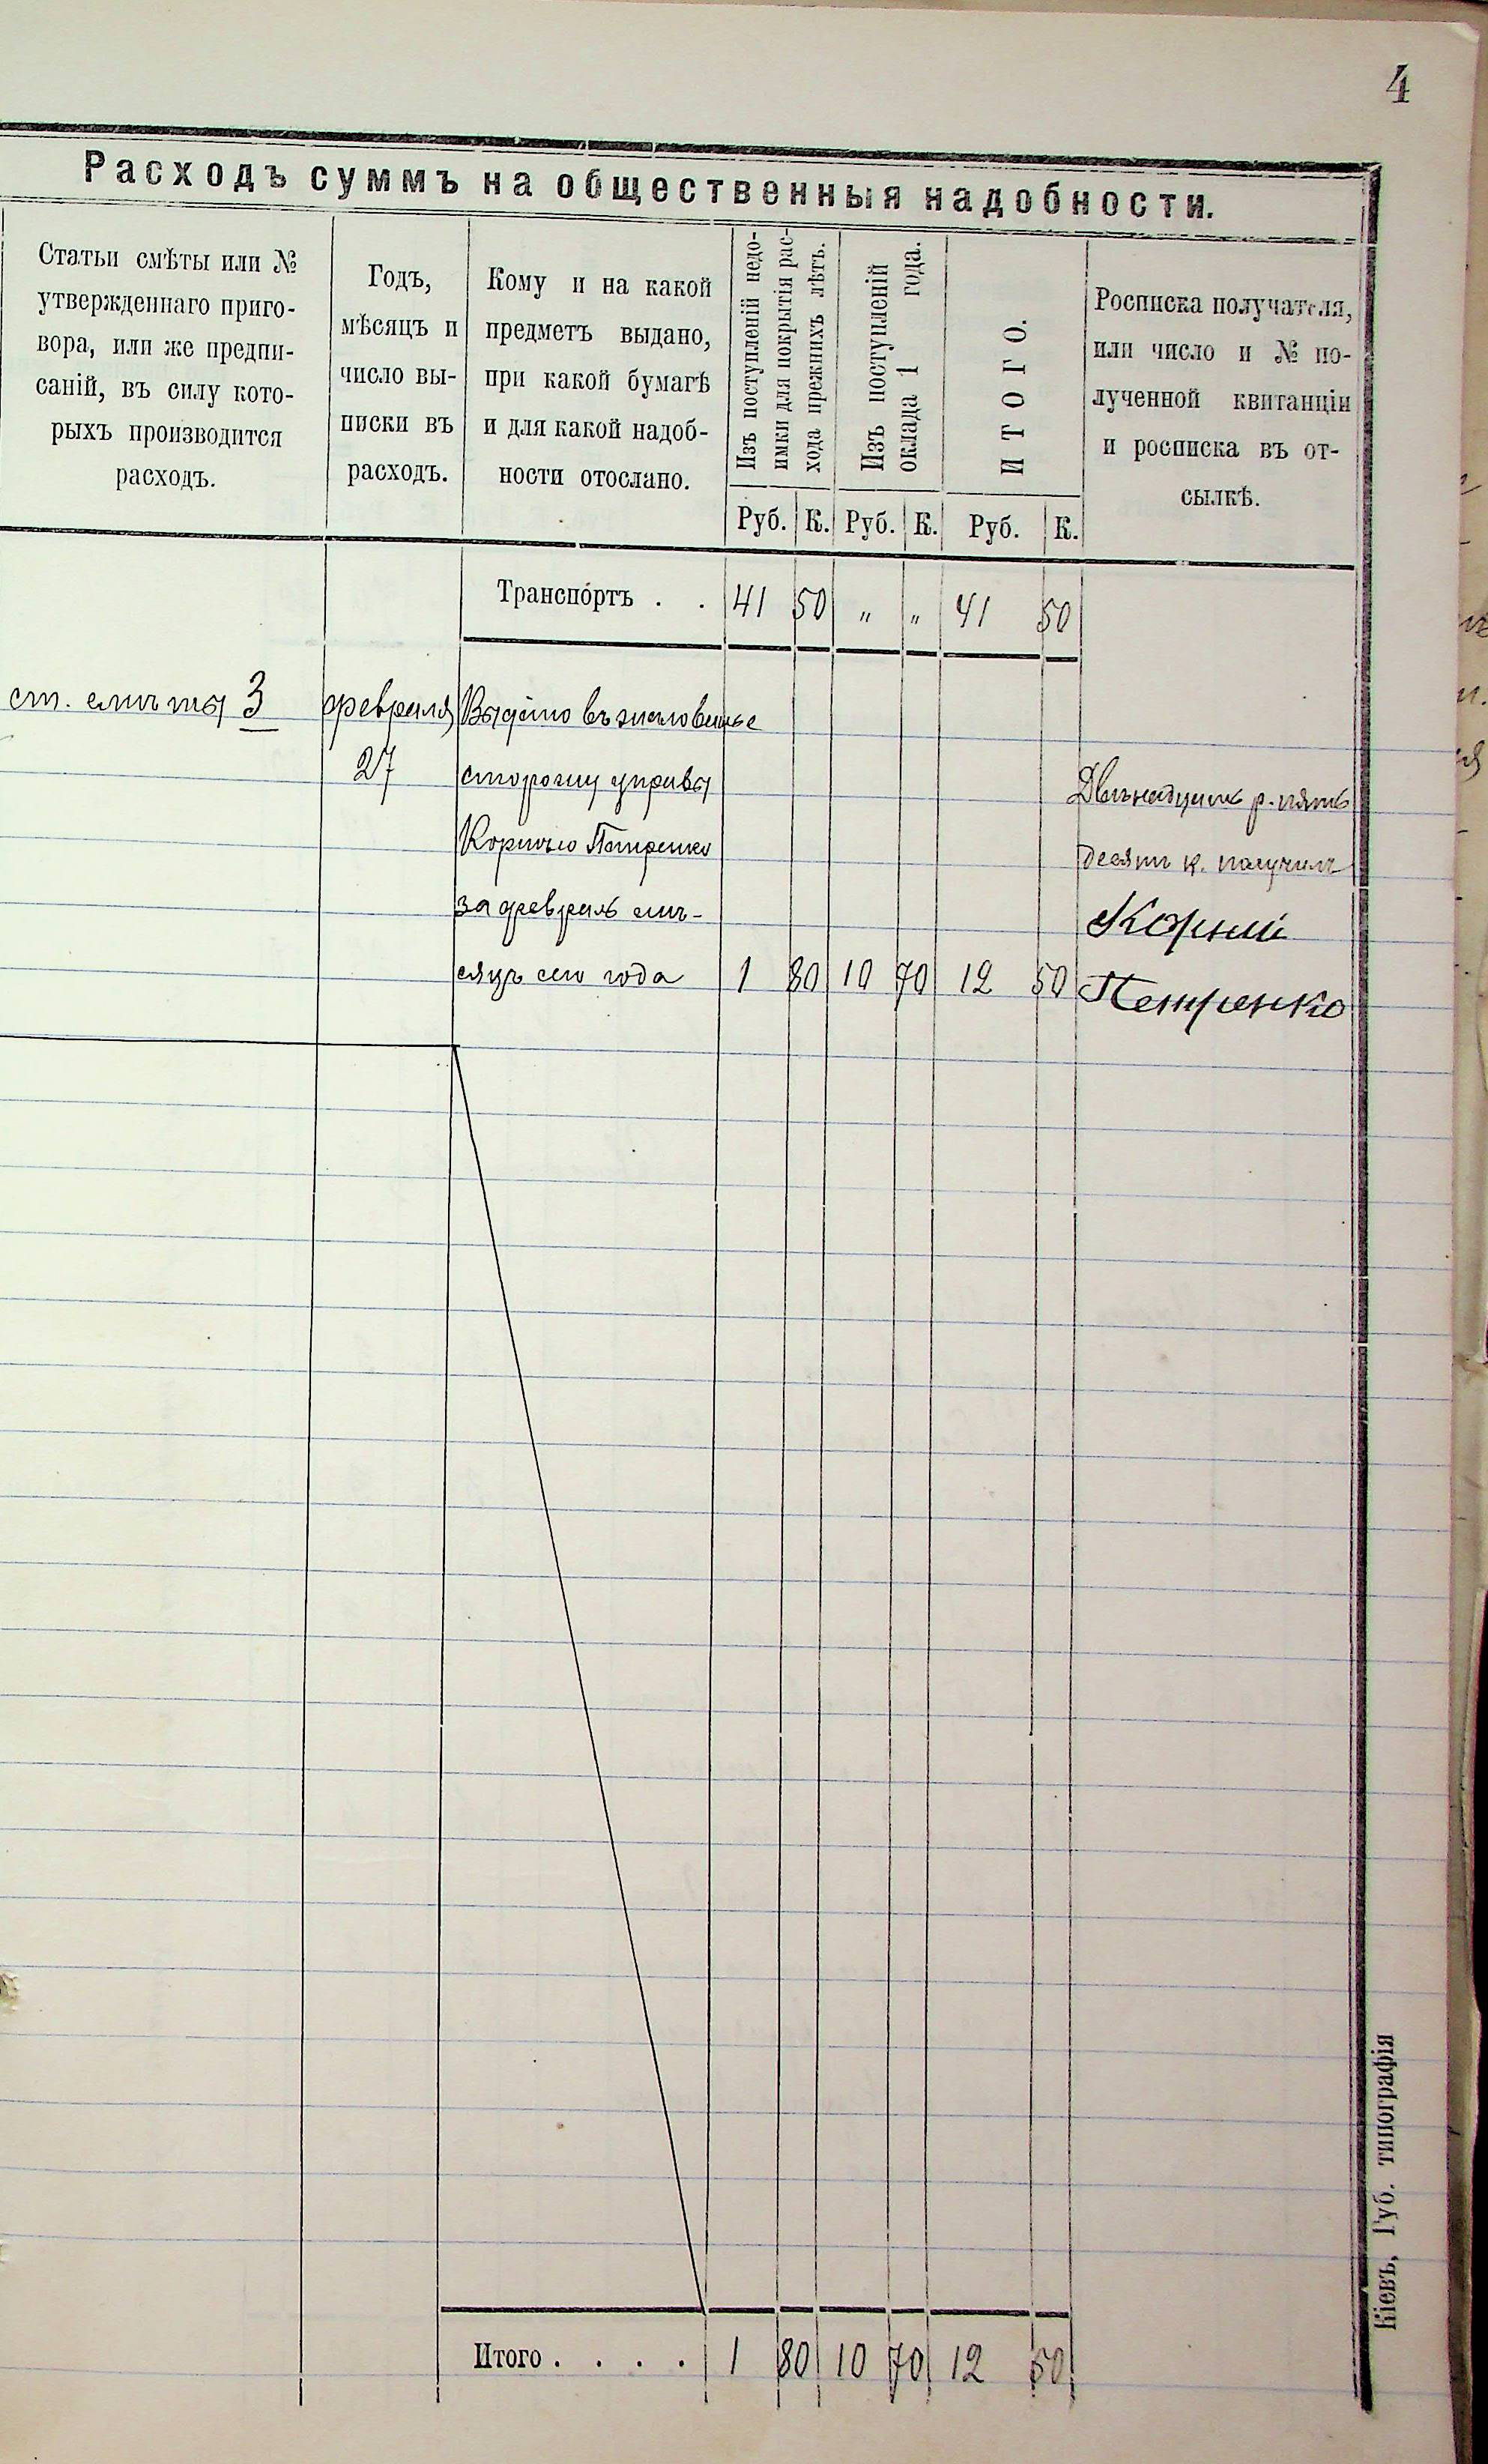 4
Расходъ суммъ на общественныя надобности.
Статьи смѣты или №
утвержденнаго приго-
вора, или же предпи-
саній, въ силу кото-
рыхъ производится
расходъ.
Годъ,
мѣсяцъ и
число вы-
писки въ
расходъ.
Кому и на какой
предметъ выдано,
при какой бумагѣ
и для какой надоб-
ности отослано.
Изъ поступленій недо-
имки для покрытія рас-
хода прежнихъ лѣтъ.
Изъ поступленій
оклада 1 года.
ИТОГО.
Росписка получателя,
или число и № по-
лученной квитанціи
и росписка въ от-
сылкѣ.
Руб. К. Руб. К. Руб. К.
Транспортъ . . 41 50 „ „ 41 50
ст. смѣты 3 февраля Выдано въ жалованье
27 сторожу управы Двѣнадцать р. пять
Корнѣю Петренко десятъ к. получилъ
за февраль мѣ- Корній
сяцъ сего года 1 80 10 70 12 50 Петренко
Итого . . . . 1 80 10 70 12 50
Кіевъ, Губ. типографія